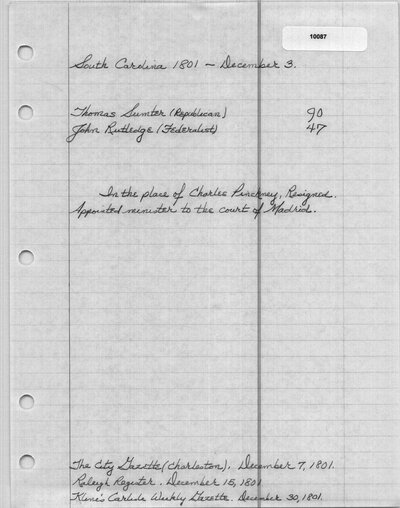 10087
South Carolina 1801 - December 3.
Thomas Sumter (Republican) 90
John Rutledge (Federalist) 47
In the place of Charles Pinckney, Resigned.
Appointed minister to the court of Madrid.
The City Gazette (Charleston). December 7, 1801.
Raleigh Register. December 15, 1801
Kline's Carlisle Weekly Gazette. December 30, 1801.